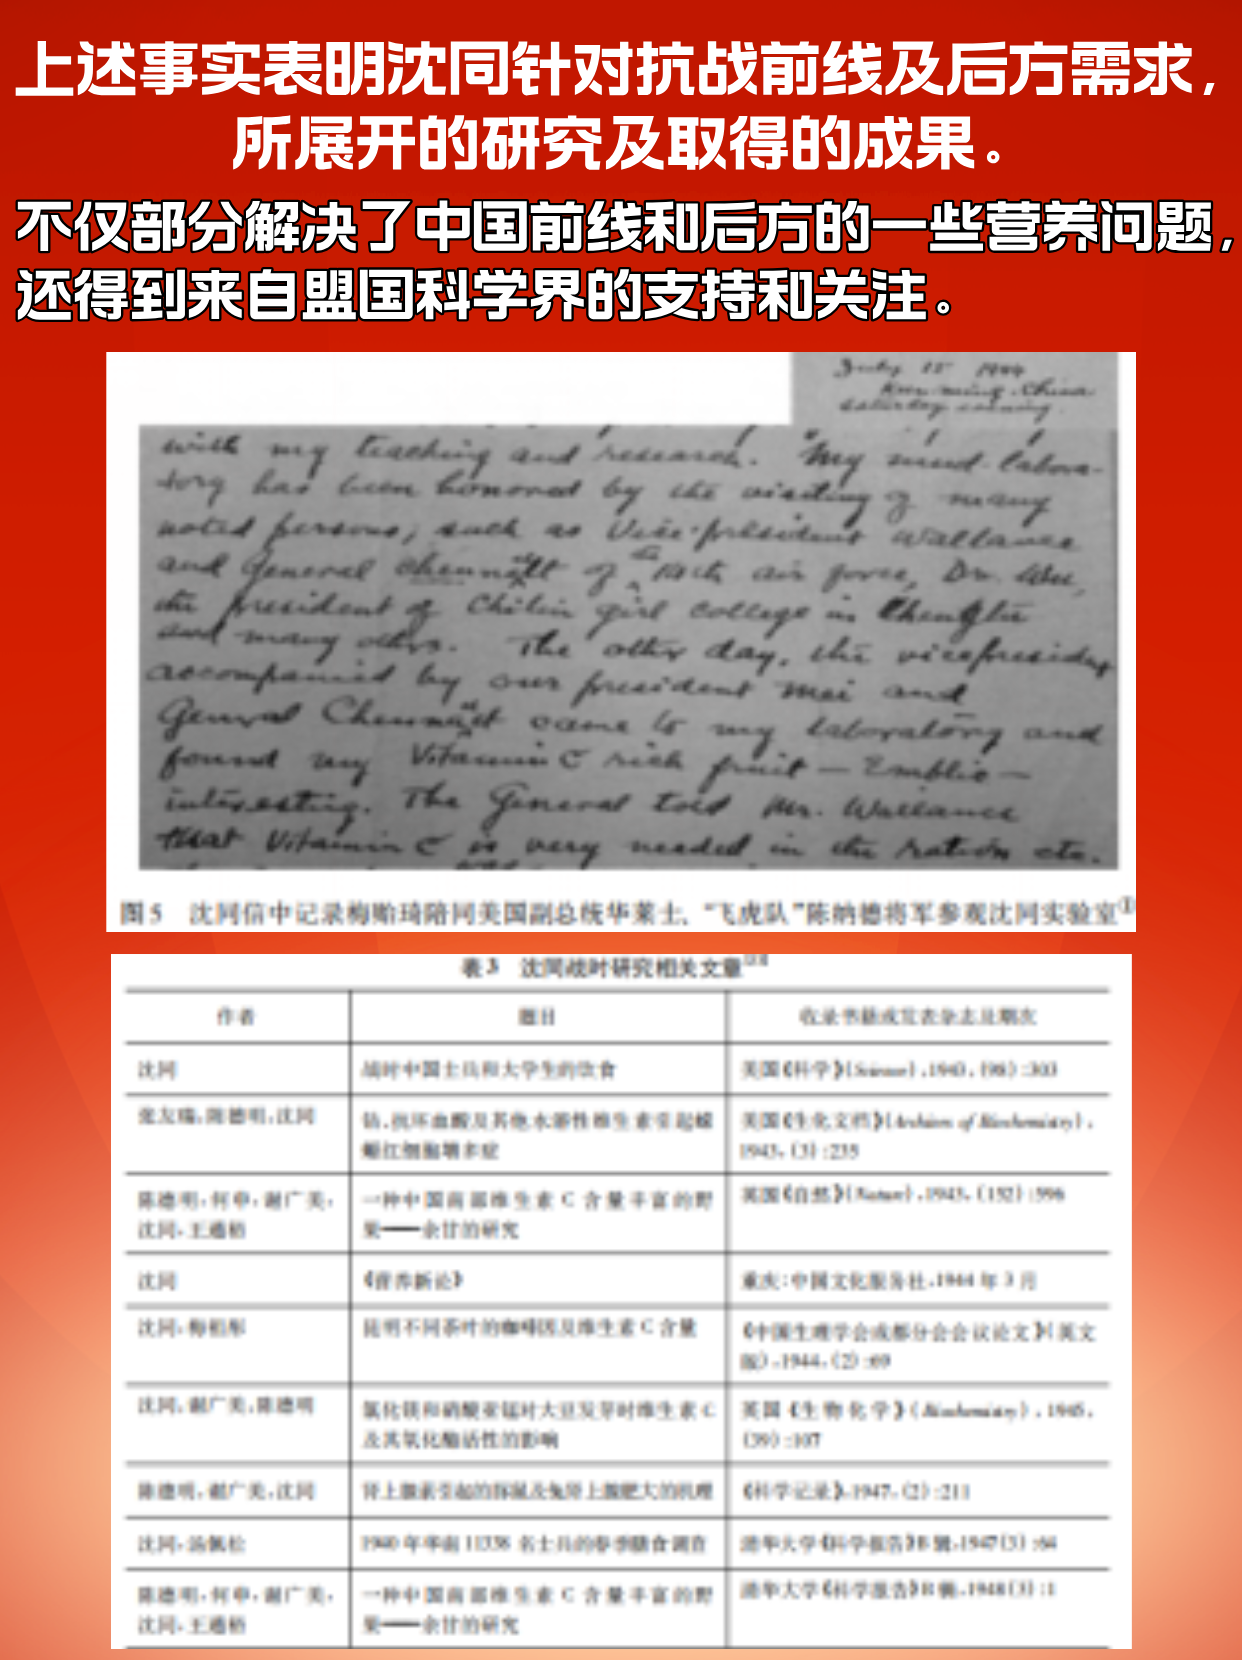 上述事实表明沈同针对抗战前线及后方需求，
所展开的研究及取得的成果。
不仅部分解决了中国前线和后方的一些营养问题，
还得到来自盟国科学界的支持和关注。
July 15 1944
Kunming, China
Saturday evening
with my teaching and research. My mind labora-
tory has been honored by the visiting of many
noted persons, such as Vice-president Wallance
and General Chennault of the 14th air force, Dr. Wu,
the president of Chilin girl college in Chengtu
and many others. The other day, the vicepresident
accompanied by our president Mei and
General Chennault came to my laboratory and
found my Vitamin C rich fruit — Emblic —
interesting. The General told Mr. Wallance
that Vitamin C is very needed in the ration etc.
图5 沈同信中记录梅贻琦陪同美国副总统华莱士、“飞虎队”陈纳德将军参观沈同实验室①
表3 沈同战时研究相关文章
作者 题目 收录书籍或发表杂志及期次
沈同 战时中国士兵和大学生的饮食 美国《科学》(Science),1943,(98):303
张友端,陈德明,沈同 钴、抗坏血酸及其他水溶性维生素引起 美国《生化文档》(Archives of Biochemistry),
红细胞增多症 1943,(3):235
陈德明,何申,谢广美, 一种中国南部维生素C含量丰富的野 英国《自然》(Nature),1943,(152):596
沈同,王通裕 果——余甘的研究
沈同 《营养新论》 重庆:中国文化服务社,1944年3月
沈同,梅祖彤 昆明不同茶叶的咖啡因及维生素C含量 《中国生理学会成都分会会议论文》(英文
版),1944,(2):69
沈同,谢广美,陈德明 氯化镁和硝酸亚锰对大豆发芽时维生素C 英国《生物化学》(Biochemistry),1945,
及其氧化酶活性的影响 (39):107
陈德明,谢广美,沈同 肾上腺肥大的机理 《科学记录》,1947,(2):211
沈同,汤佩松 1940年华南11338名士兵的春季膳食调查 清华大学《科学报告》B辑,1947(3):64
陈德明,何申,谢广美, 一种中国南部维生素C含量丰富的野 清华大学《科学报告》B辑,1948(3):1
沈同,王通裕 果——余甘的研究